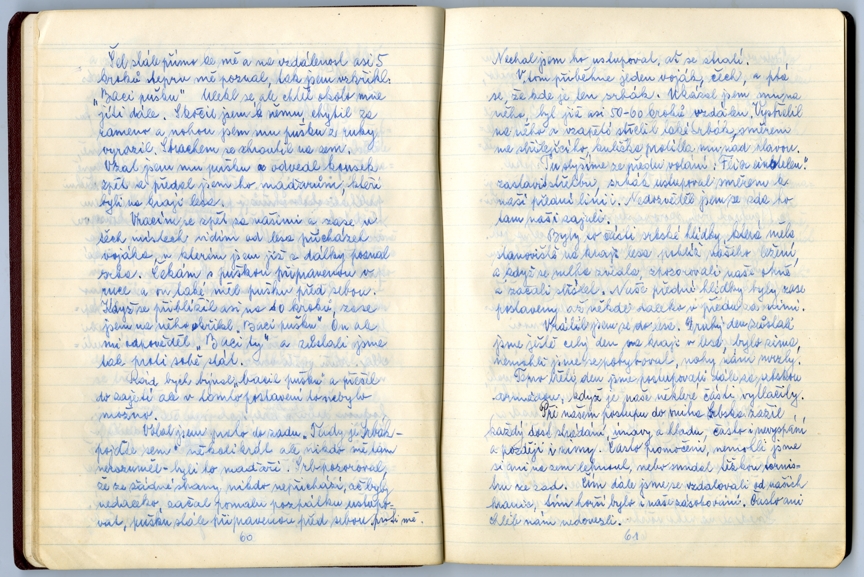 Šel stále přímo ke mě a na vzdálenost asi 5
kroků teprv mě poznal, tak jsem vzkřikl:
„Baci pušku" Ulekl se, ale chtěl okolo mne
jíti dále. Skočil jsem k němu, chytil za
rameno a nohou jsem mu pušku z ruky
vyrazil. Strachem se zhroutil na zem.
Vzal jsem mu pušku a odvedl kousek
zpět a předal jsem ho maďarům, kteří
byli na kraji lesa.
Vracím se zpět za našimi a zase v
těch místech vidím od lesa přicházet
vojáka, v kterém jsem již z dálky poznal
srba. Čekám s puškou připravenou v
ruce a on také měl pušku před sebou.
Když se přiblížil asi na 10 kroků, zase
jsem na něho křikl „Baci pušku". On ale
mi odpověděl „Baci ty" a zůstali jsme
tak proti sobě stát.
Rád bych býval „bacil pušku" a přešel
do zajetí ale v tomto postavení to nebylo
možno.
Volal jsem proto do zadu. „Tady je Srbák-
pojďte sem" několikrát ale nikdo mi tam
nerozuměl - byli to maďaři. Srb pozoroval,
že ze žádné strany, nikdo nepřichází, ač byly
nedaleko, začal pomalu pozpátku ustupo-
vat, pušku stále připravenou před sebou proti mě.
60
Nechal jsem ho ustupovat, až se ztratil.
V tom přiběhne jeden voják, čech, a ptá
se, že kde je ten srbák. Ukázal jsem mu na
něho, byl již asi 50-60 kroků vzdálen. Vystřelil
na něho a vzápětí střelil také srbák, směrem
na střílejícího, kulička proletěla mu nad hlavou.
Tu slyšíme ze předu volání: „Flixr
zastavit střelbu, srbák ustupoval směrem k
naší přední linii. Nedozvěděl jsem se zda ho
tam naši zajali.
Byly to části srbské hlídky, která měla
stanoviště na kraji lesa poblíž našeho ležení,
a když se mlha zvedla, zpozorovali naše ohně
a začali střílet. Naše přední hlídky byly zase
postaveny až někde daleko v předu za nimi.
Vrátili jsme se do lesa. Druhý den zůstali
jsme ještě celý den na kraji v lese, bylo zima,
nemohli jsme se pohybovat, nohy nám mrzly.
Teprv třetí den jsme postupovali dále za srbskou
armádou, když je naše některé části vytlačily.
Při našem postupu do nitra Srbska zažil
každý dost strádání, únavy a hladu, často i nevyspání
a později i zimy. Často promočeni, nemohli jsme
si ani na zem lehnout, nebo sundat těžkou tornis-
tru ze zad. Čím dále jsme se vzdalovali od našich
hranic, tím horší bylo i naše zásobování. Často ani
chléb nám nedovezli.
61